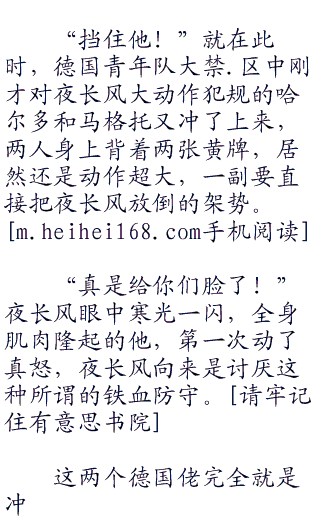 “挡住他！”就在此
时，德国青年队大禁.区中刚
才对夜长风大动作犯规的哈
尔多和马格托又冲了上来，
两人身上背着两张黄牌，居
然还是动作超大，一副要直
接把夜长风放倒的架势。
[m.heihei168.com手机阅读]
“真是给你们脸了！”
夜长风眼中寒光一闪，全身
肌肉隆起的他，第一次动了
真怒，夜长风向来是讨厌这
种所谓的铁血防守。[请牢记
住有意思书院]
这两个德国佬完全就是
冲